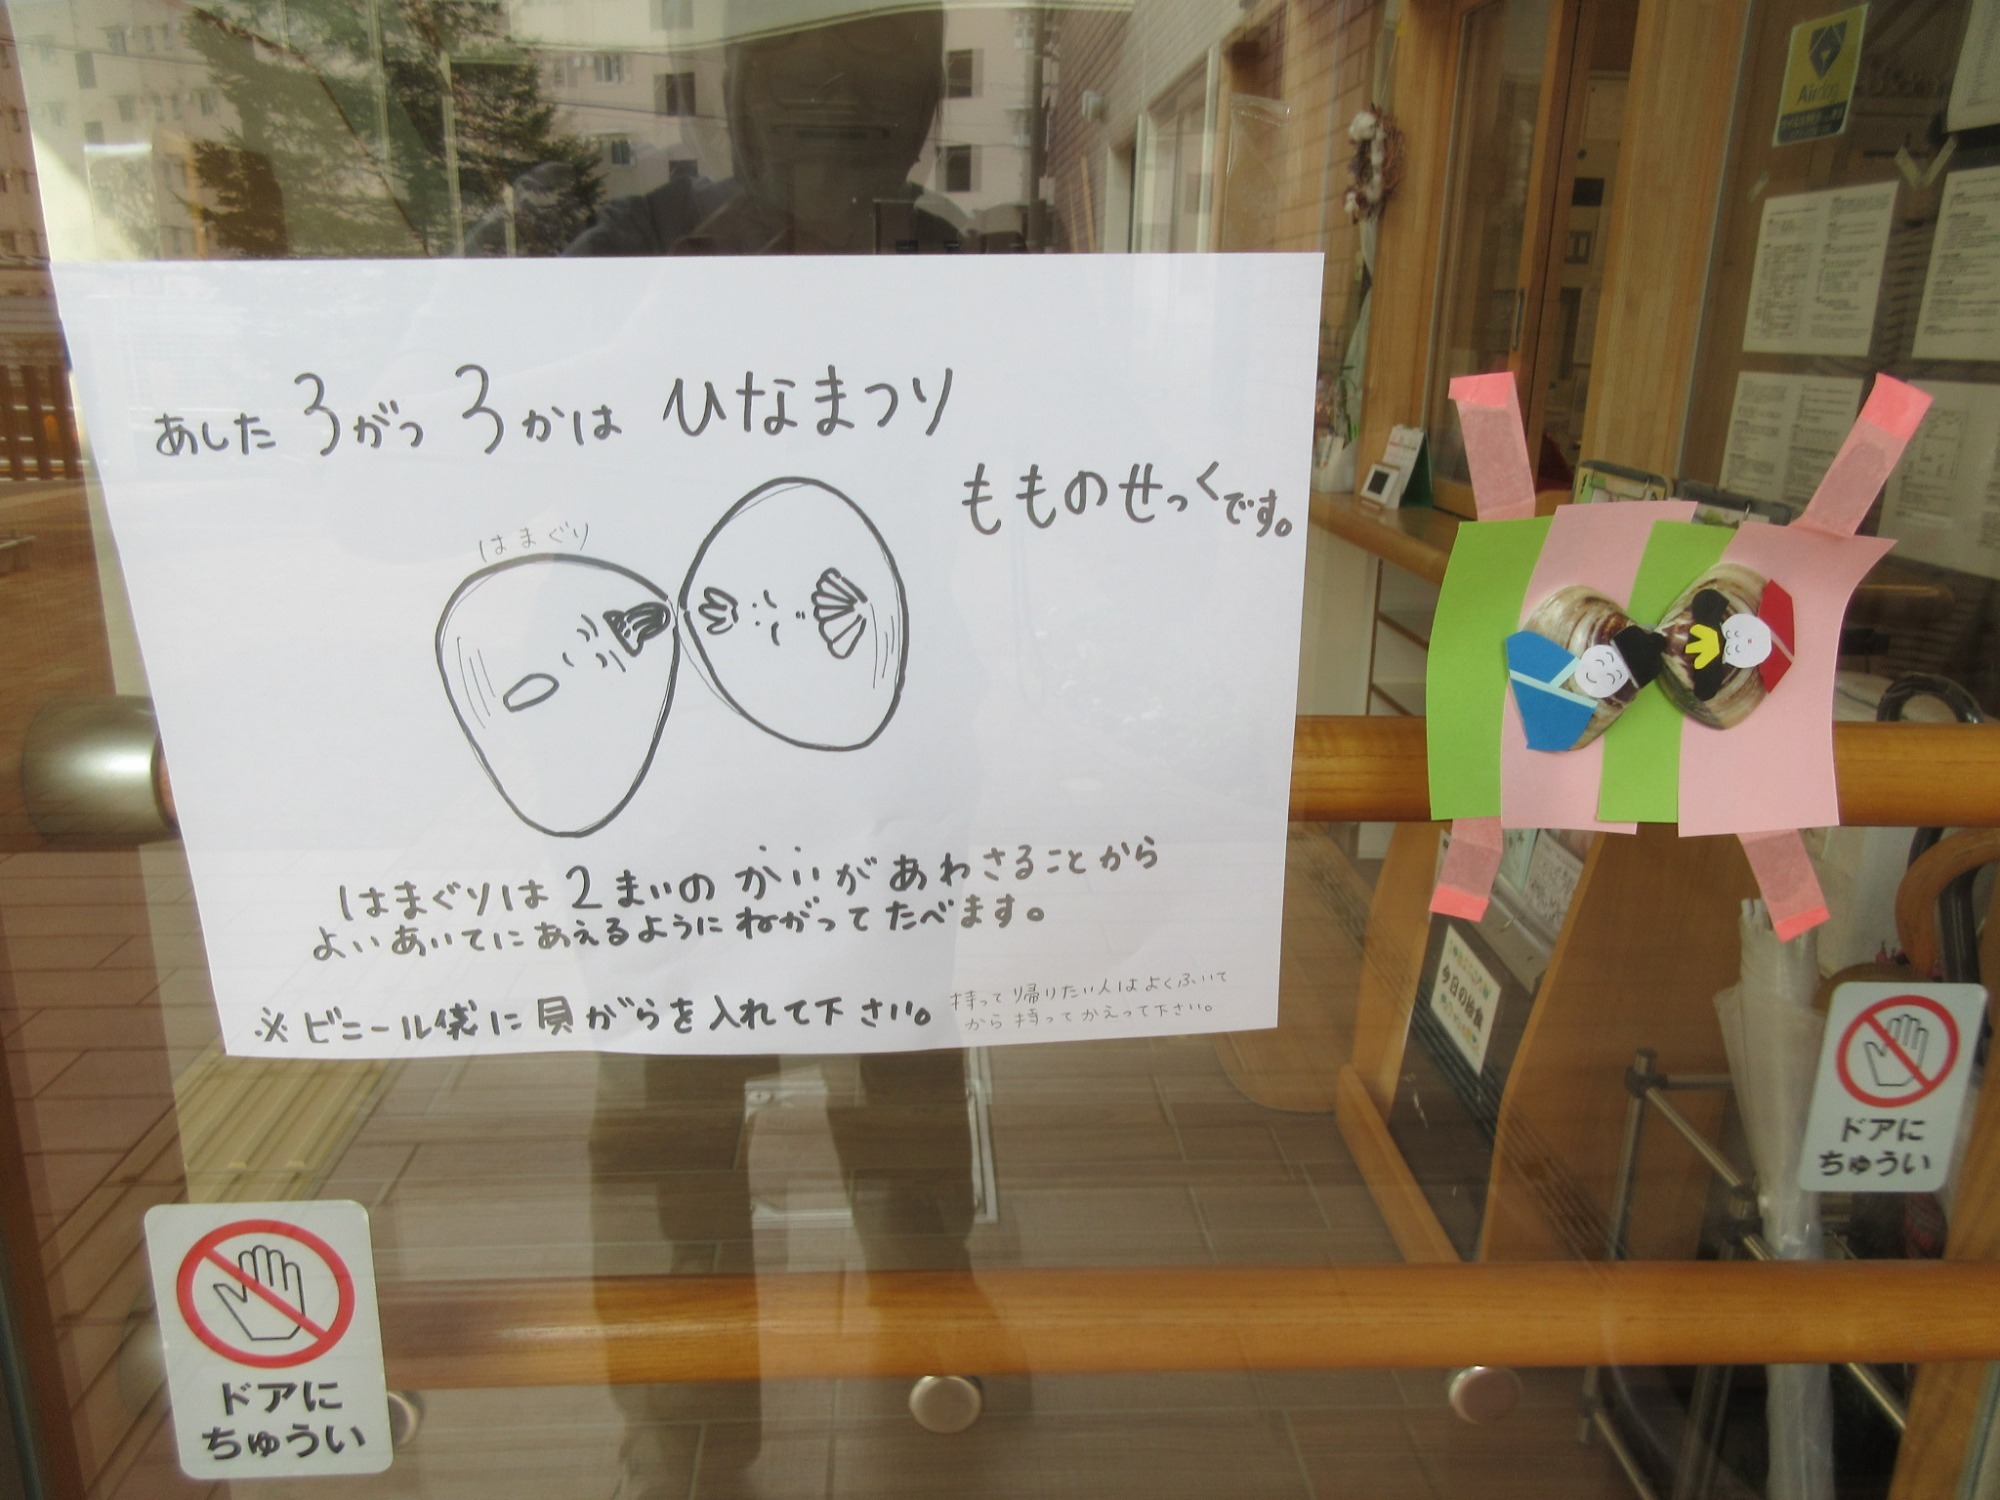 あした3がつ3かは ひなまつり
もものせっくです。
はまぐり
はまぐりは2まいのかいがあわさることから
よいあいてにあえるようにねがってたべます。
※ビニール袋に貝がらを入れて下さい。
持って帰りたい人はよくふいて
から持ってかえって下さい。
ドアに
ちゅうい
ドアに
ちゅうい
今日の給食